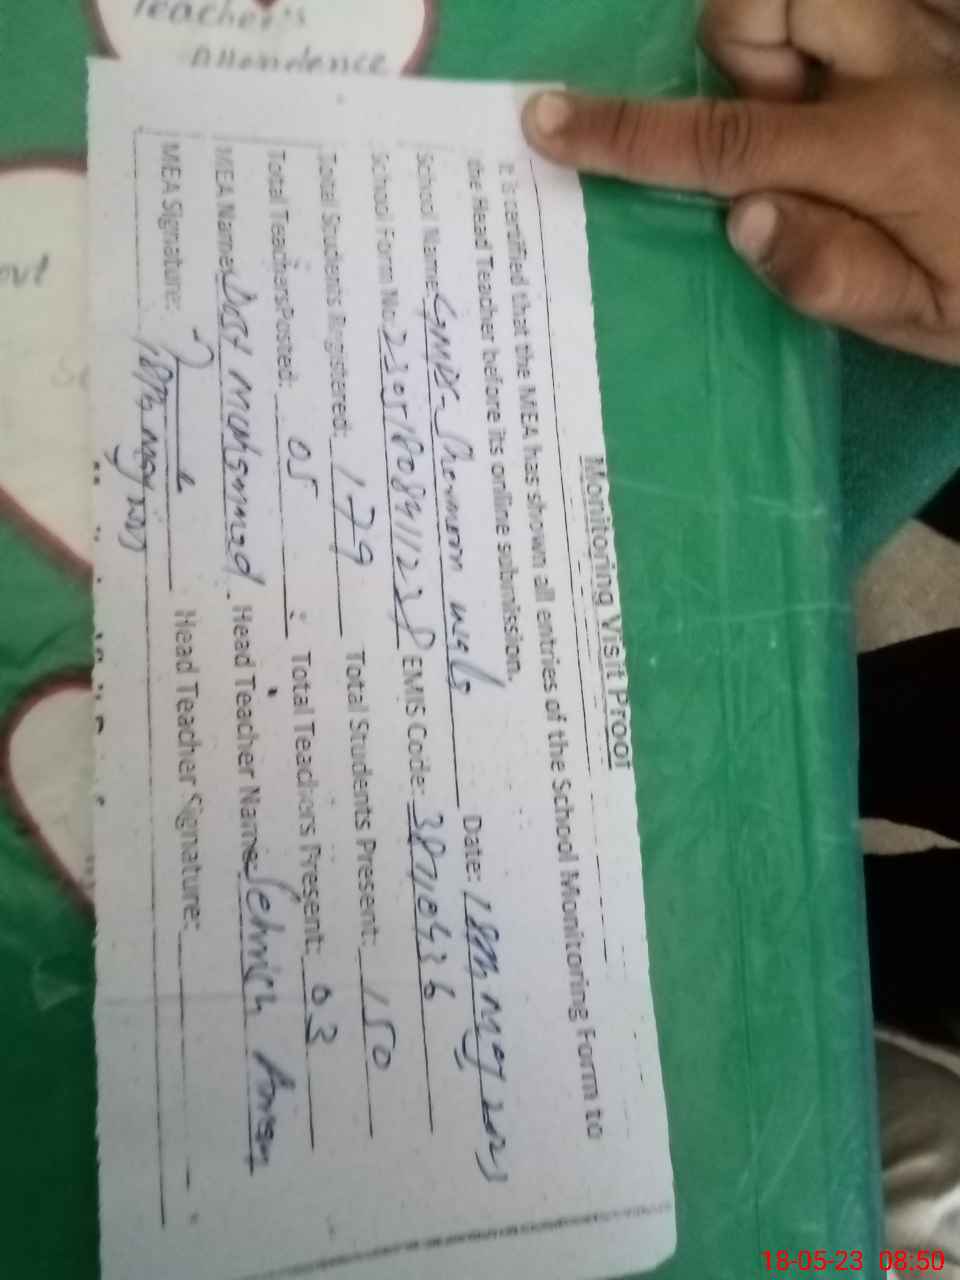 Teacher's
Attendence
out
Monitoring Visit Proof
It is certified that the MEA has shown all entries of the School Monitoring Form to
the Head Teacher before its online submission.
School Name: Date: 18th May 2023
School Form No: 23051808411238 EMIS Code:
Total Students Registered: 179 Total Students Present: 150
Total Teachers Posted: 05 Total Teachers Present: 03
MEA Name: Dost Mohammad Head Teacher Name:
MEA Signature: Head Teacher Signature:
18th May 2023
18-05-23 08:50